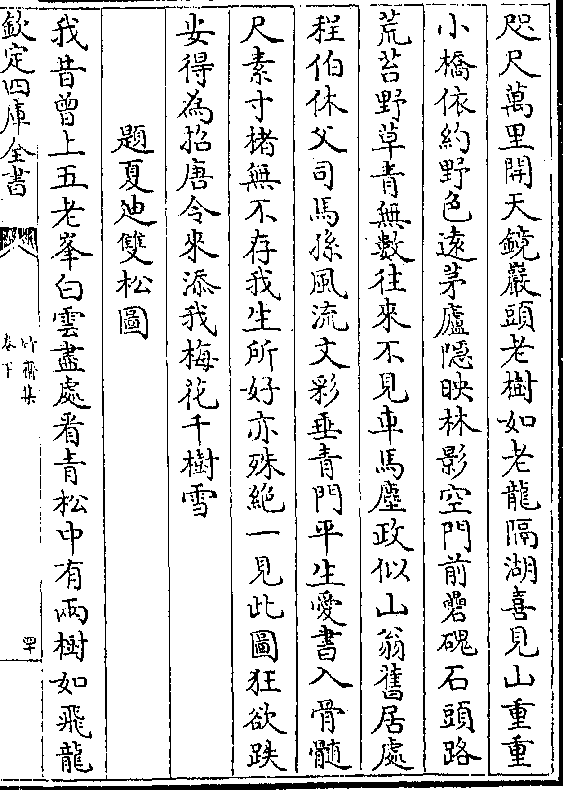 咫尺萬里開天鏡巖頭老樹如老龍隔湖喜見山重重
小橋依約野色遠茅廬隱映林影空門前礨磈石頭路
荒苔野草青無數往來不見車馬塵政似山翁舊居處
程伯休父司馬孫風流文彩垂青門平生愛書入骨髓
尺素寸楮無不存我生所好亦殊絶一見此圖狂欲跌
安得為招唐令來添我梅花千樹雪
題夏廸雙松圖
我昔曾上五老峯白雲盡處看青松中有兩樹如飛龍
欽定四庫全書
竹齋集
卷下